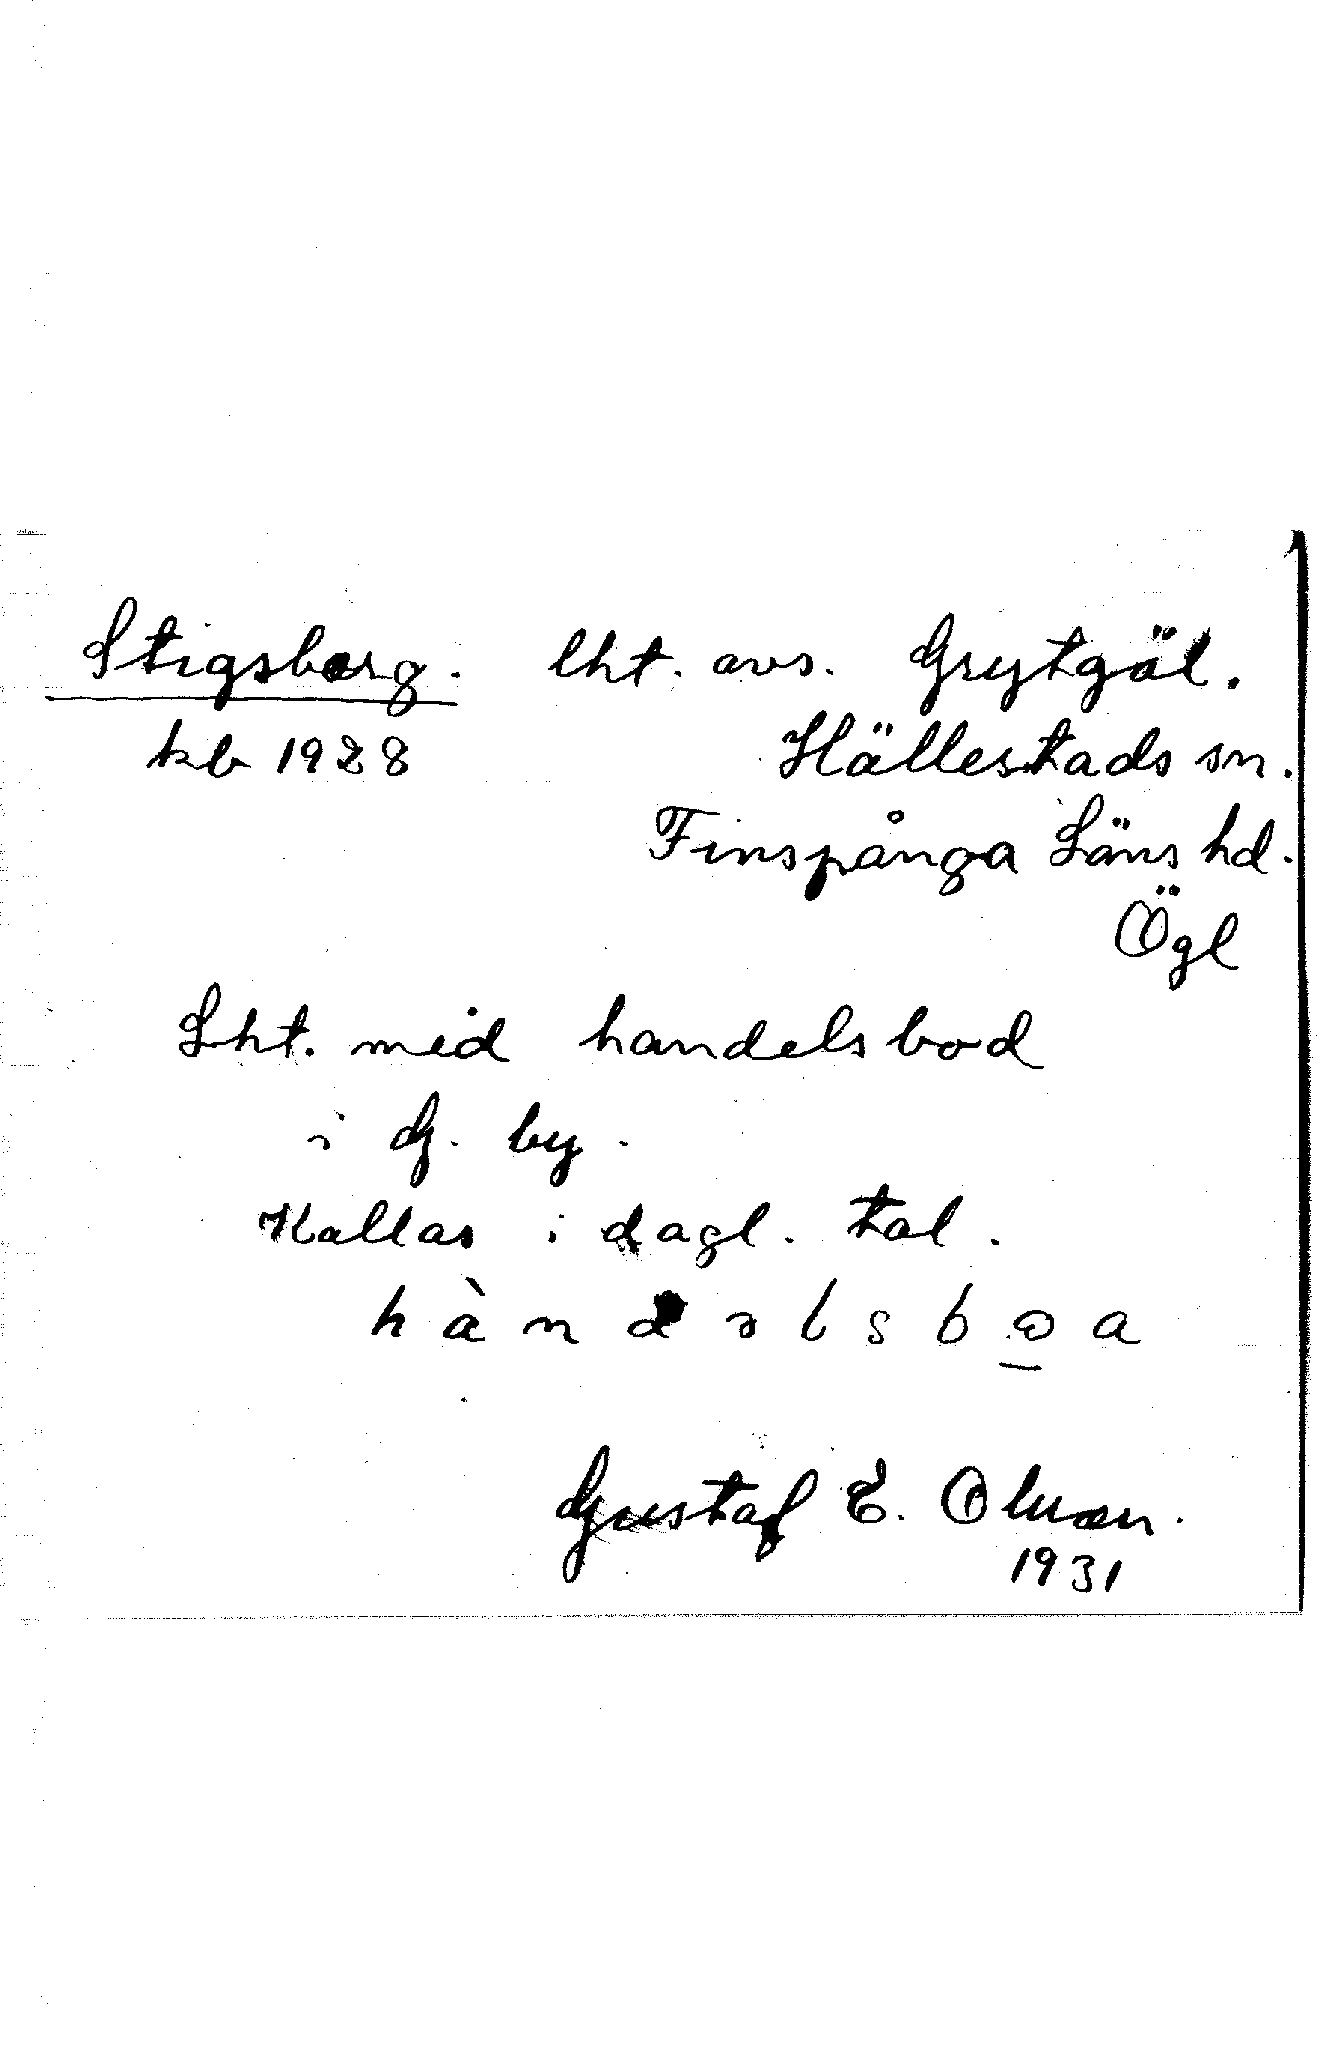 Stigsberg. lht. avs. Grytgöl.
kb 1928 Hällestads sn.
Finspånga Läns hd.
Ögl
Lht. med handelsbod
i G. by.
Kallas i dagl. tal.
hàndəlsboa
Gustaf E. Olsson.
1931